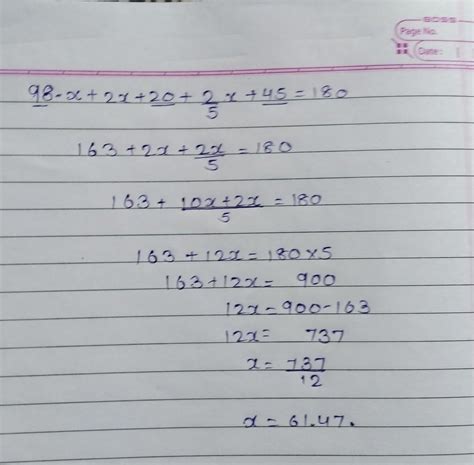 BOSS
Page No.
Date:
98-x+2x+20+2/5x+45=180
163+2x+2x/5=180
163+10x+2x/5=180
163+12x=180×5
163+12x= 900
12x=900-163
12x= 737
x=737/12
x=61.47.